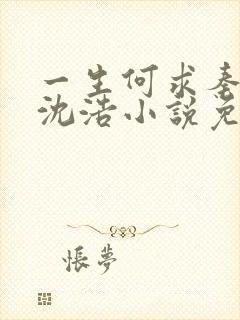 一生何求
沈浩小說免
悵夢